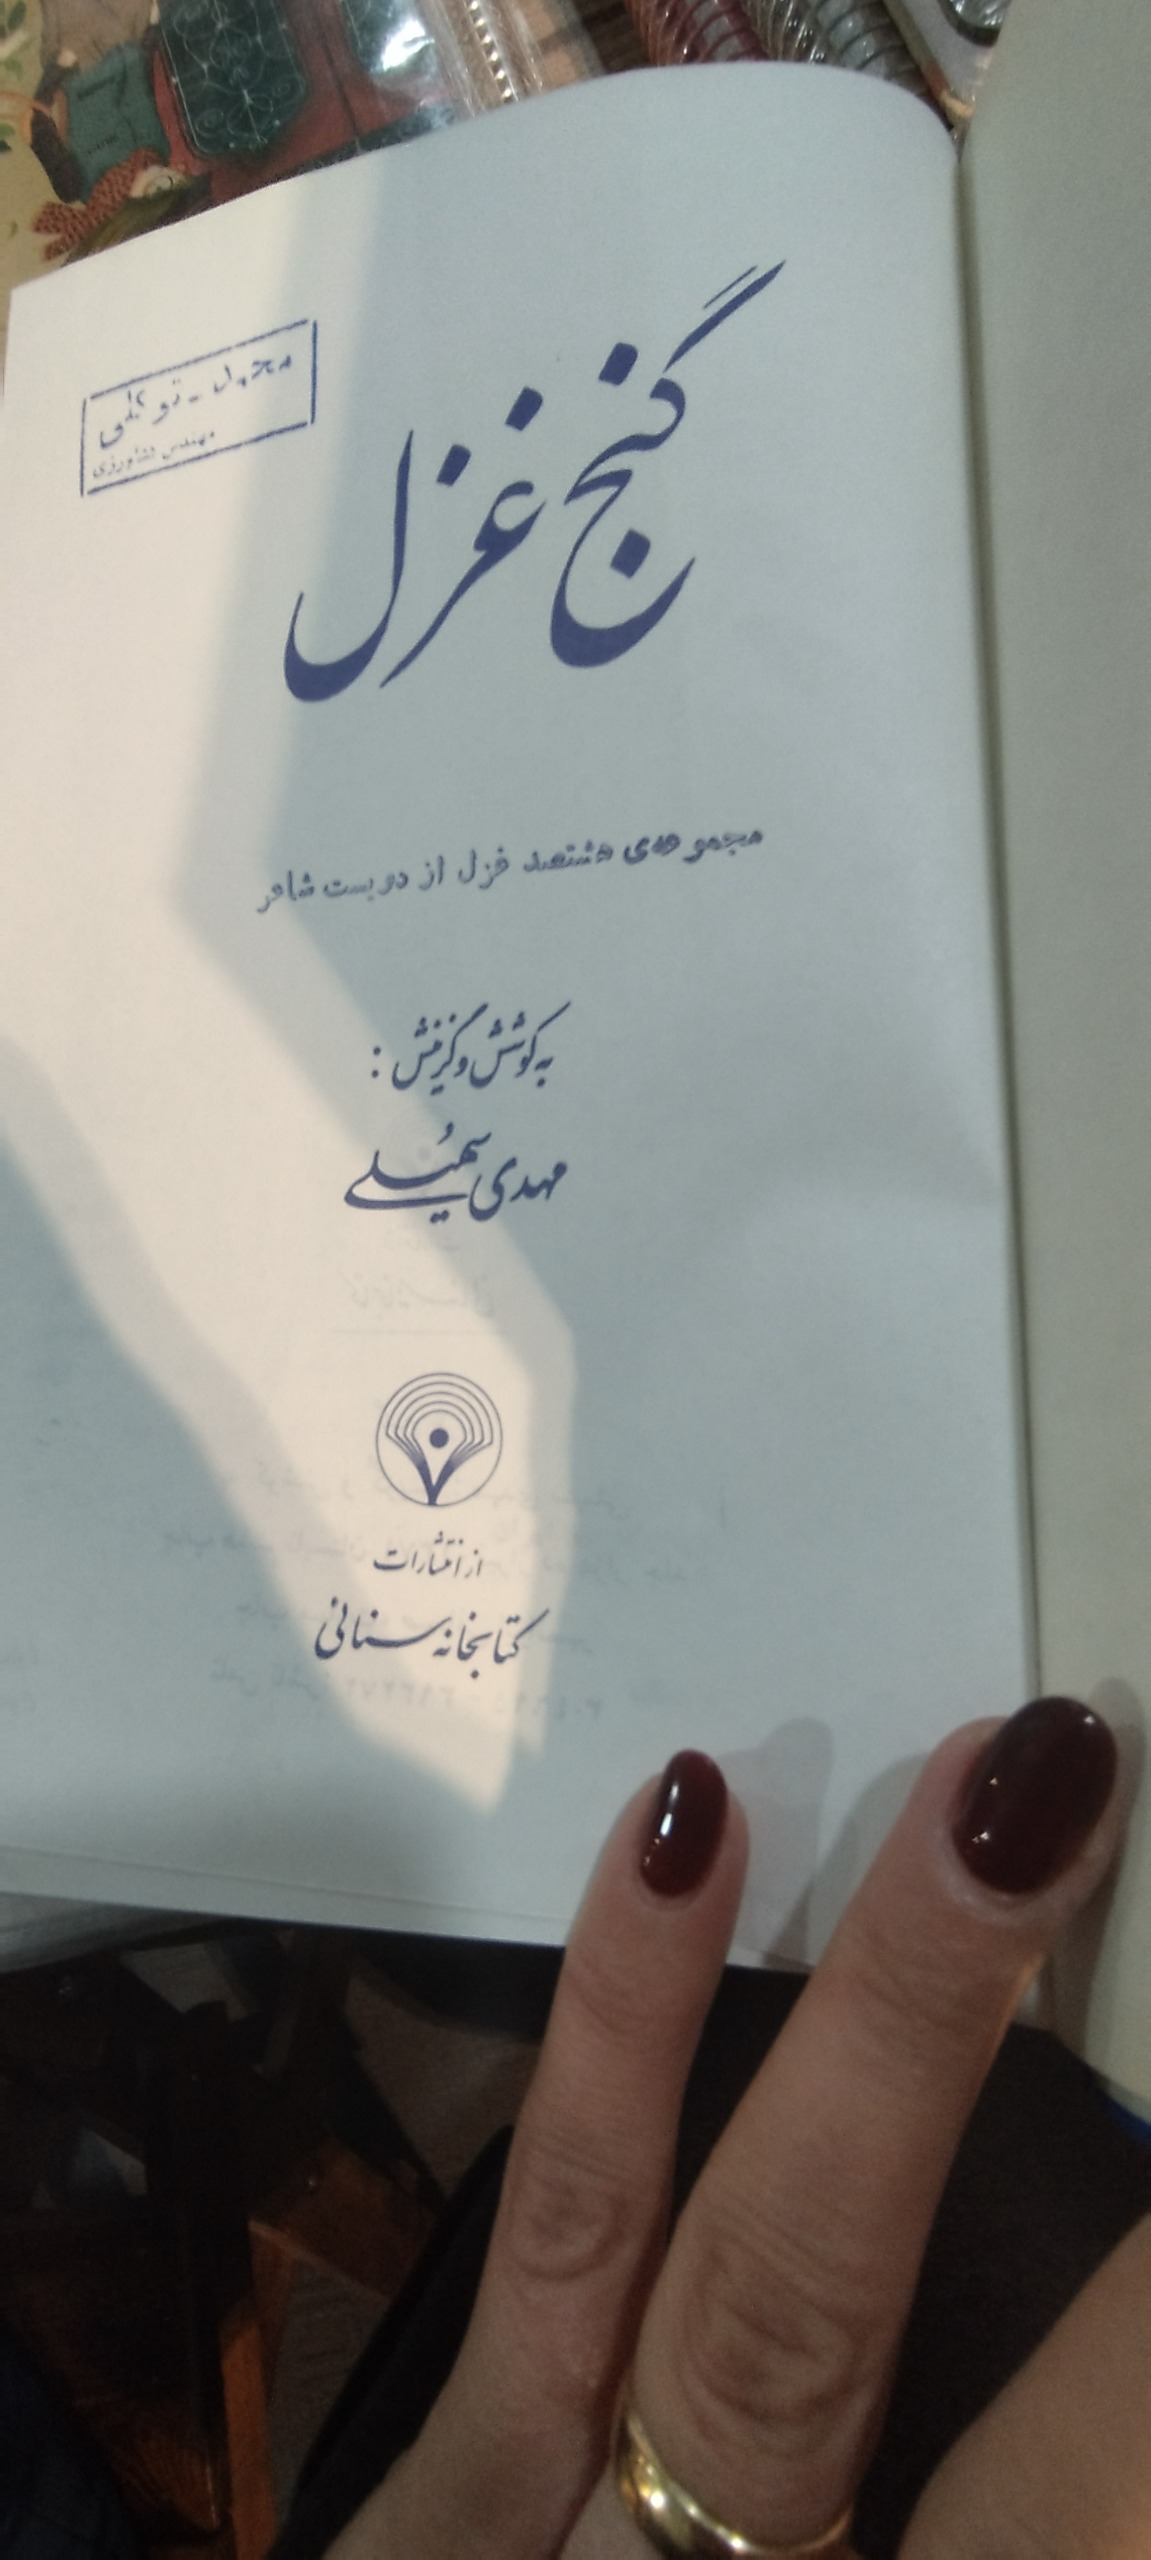 گنج غزل
محمد - توکلی
مهندس کشاورزی
مجموعه‌ی هشتصد غزل از دویست شاعر
به کوشش و گزینش :
مهدی سهیلی
از انتشارات
کتابخانه سنائی